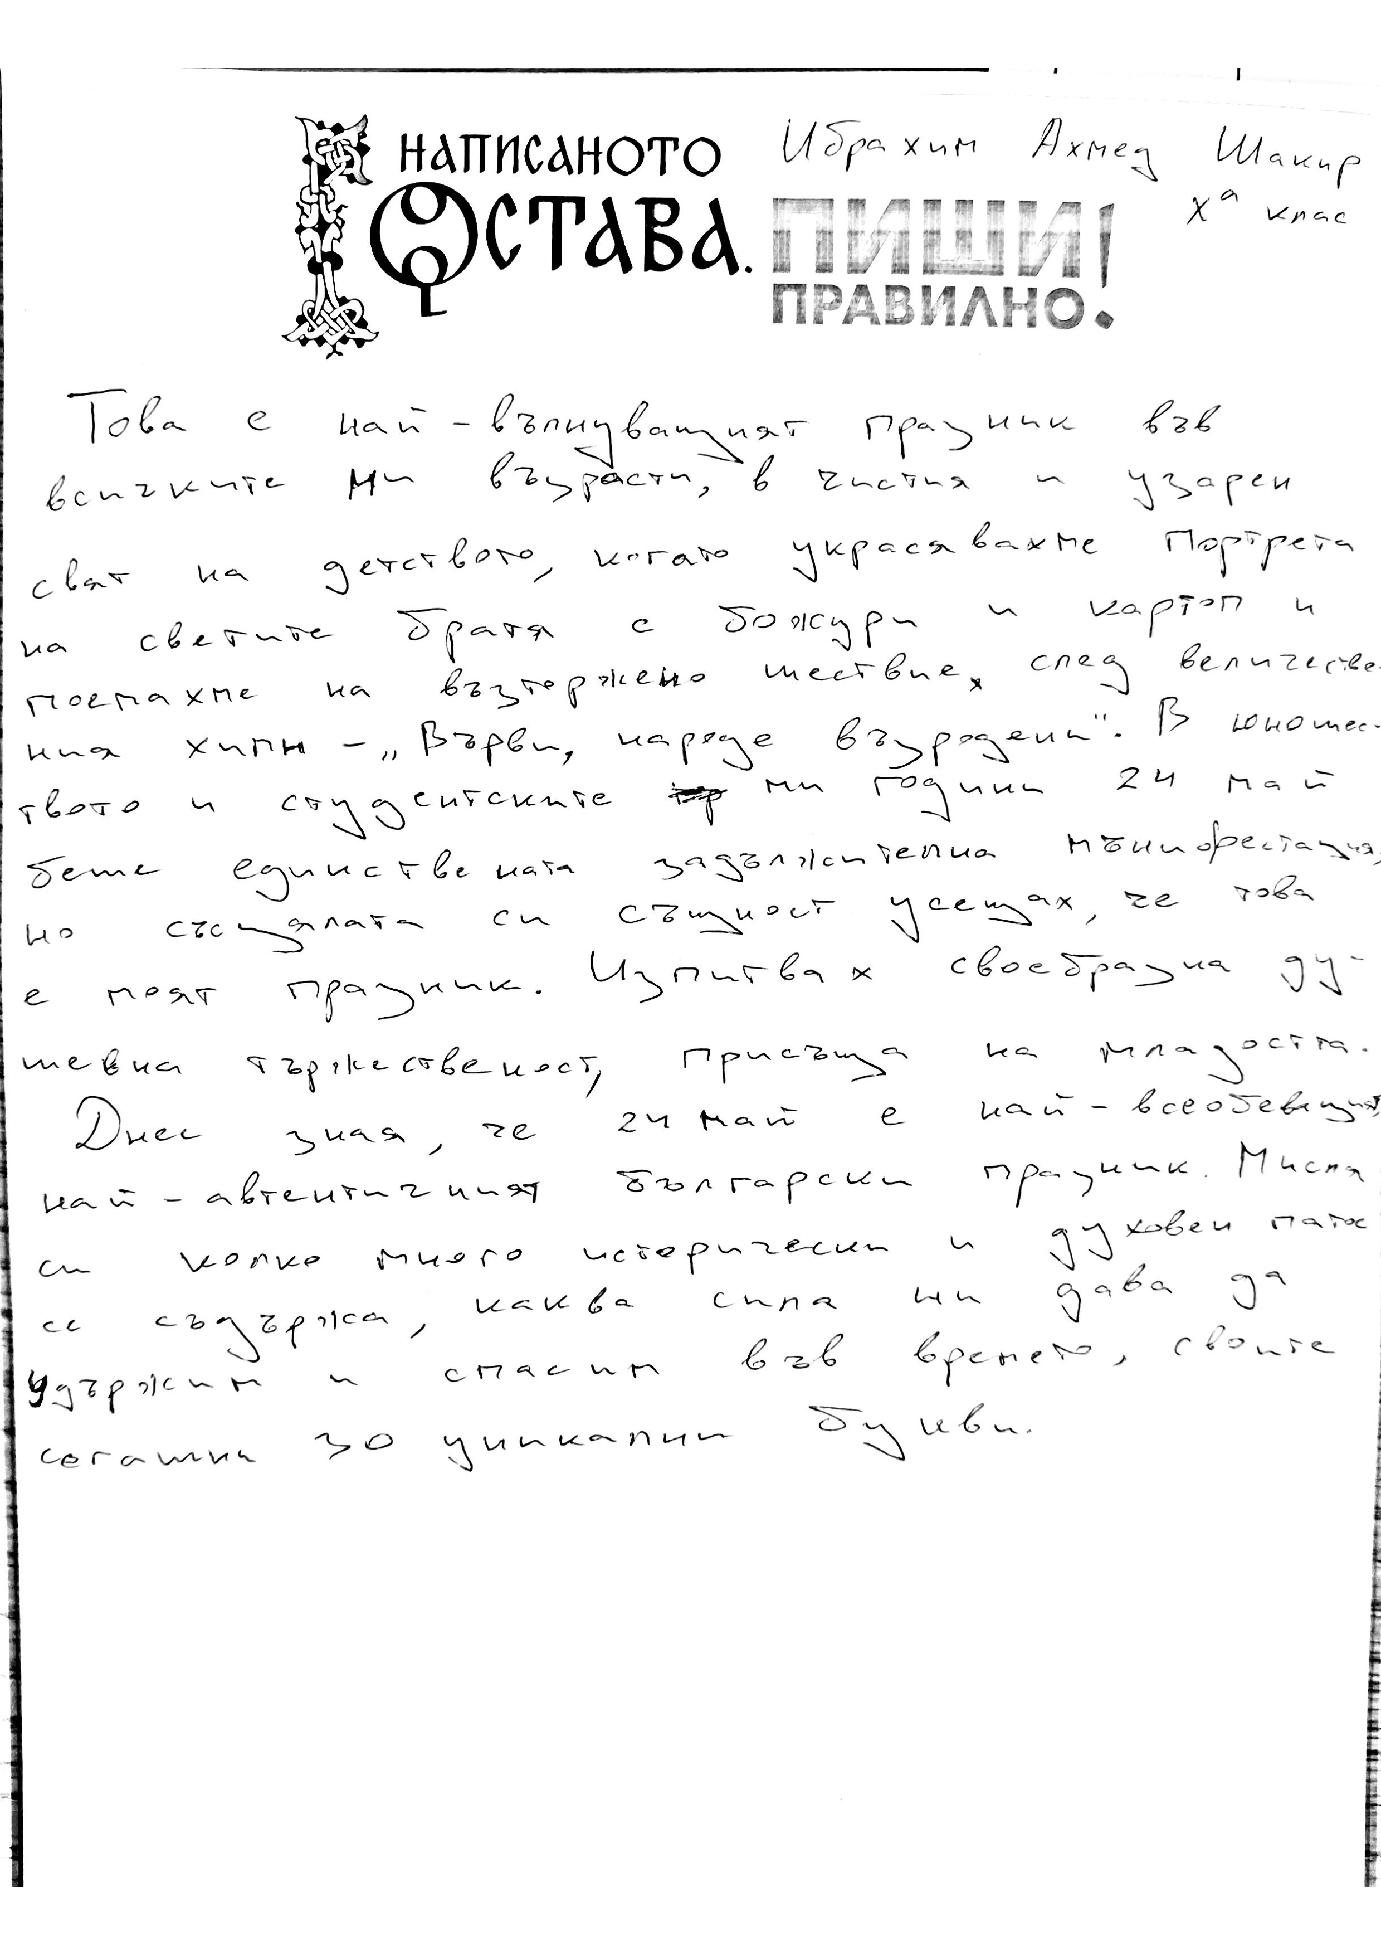 НАПИСАНОТО
ОСТАВА.
ПИШИ!
ПРАВИЛНО
Ибрахим Ахмед Шакир
Xа клас
Това е най-вълнуващият празник във
всичките ми възрасти, в чистия и узарен
свят на детството, когато украсявахме портрета
на светите братя с божури и картоп и
поемахме на възторжено шествие, след величестве-
ния химн - „Върви, народе възродени“. В юношес-
твото и студентските ми години 24 май
беше единствената задължителна мънифестация,
но съсцялата си същност усещах, че това
е моят празник. Изпитвах своебразна ду-
шевна тържественост, присъща на младостта.
Днес зная, че 24 май е най-всеобемащият,
най-автентичният български празник. Мисля
си колко много исторически и духовен патос
се съдържа, каква сила ни дава да
удържим и спасим във времето, своите
сегашни 30 уникални букви.